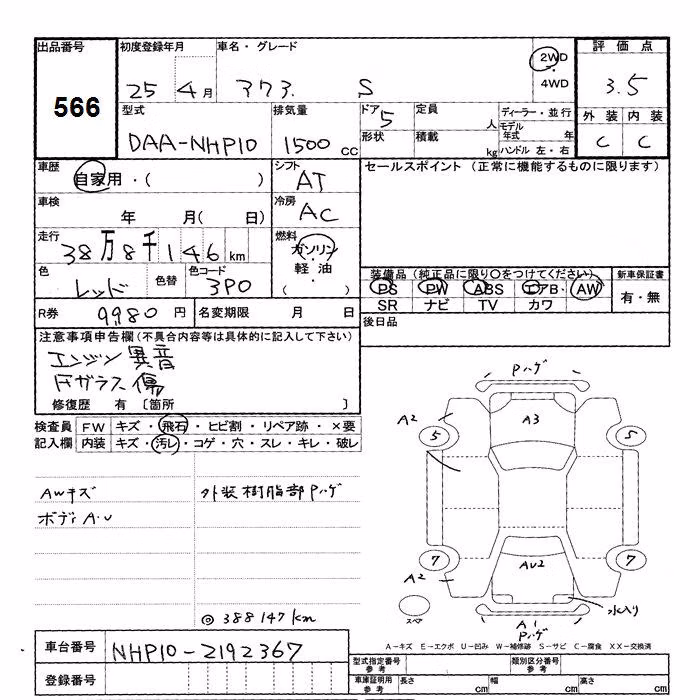 出品番号
566
初度登録年月
25 4月
車名・グレード
373. S
2WD
・
4WD
評価点
3.5
外装 内装
C C
型式
DAA-NHP10
排気量
1500 cc
ドア
5
形状
定員
人
積載
kg
ディーラー・並行
モデル年式 年
ハンドル 左・右
車歴
自家用・( )
シフト
AT
セールスポイント (正常に機能するものに限ります)
車検
年 月( 日)
冷房
AC
走行
38万8千146km
燃料
ガソリン
軽油
( ・ )
色
レッド
色替
色コード
3P0
装備品 (純正品に限り○をつけてください)
PS PW ABS エアB・ AW
SR ナビ TV カワ
新車保証書
有・無
R券
9980 円
名変期限
月 日
後日品
注意事項申告欄 (不具合内容等は具体的に記入して下さい)
エンジン異音
Fガラス傷
修復歴 有 〔箇所 〕
検査員
記入欄
FW キズ・飛石・ヒビ割・リペア跡・×要
内装 キズ・汚レ・コゲ・穴・スレ・キレ・破レ
AWキズ
ボディA・U
外装樹脂部Pハゲ
◎388147km
Pハゲ
A2
A3
5
5
7
7
A2
AU2
水入り
スペア
A1
Pハゲ
A-キズ E-エクボ U-凹み W-補修跡 S-サビ C-腐食 XX-交換済
車台番号
NHP10-2192367
登録番号
型式指定番号
参考
類別区分番号
参考
車庫証明用
参考
長さ cm
幅 cm
高さ cm